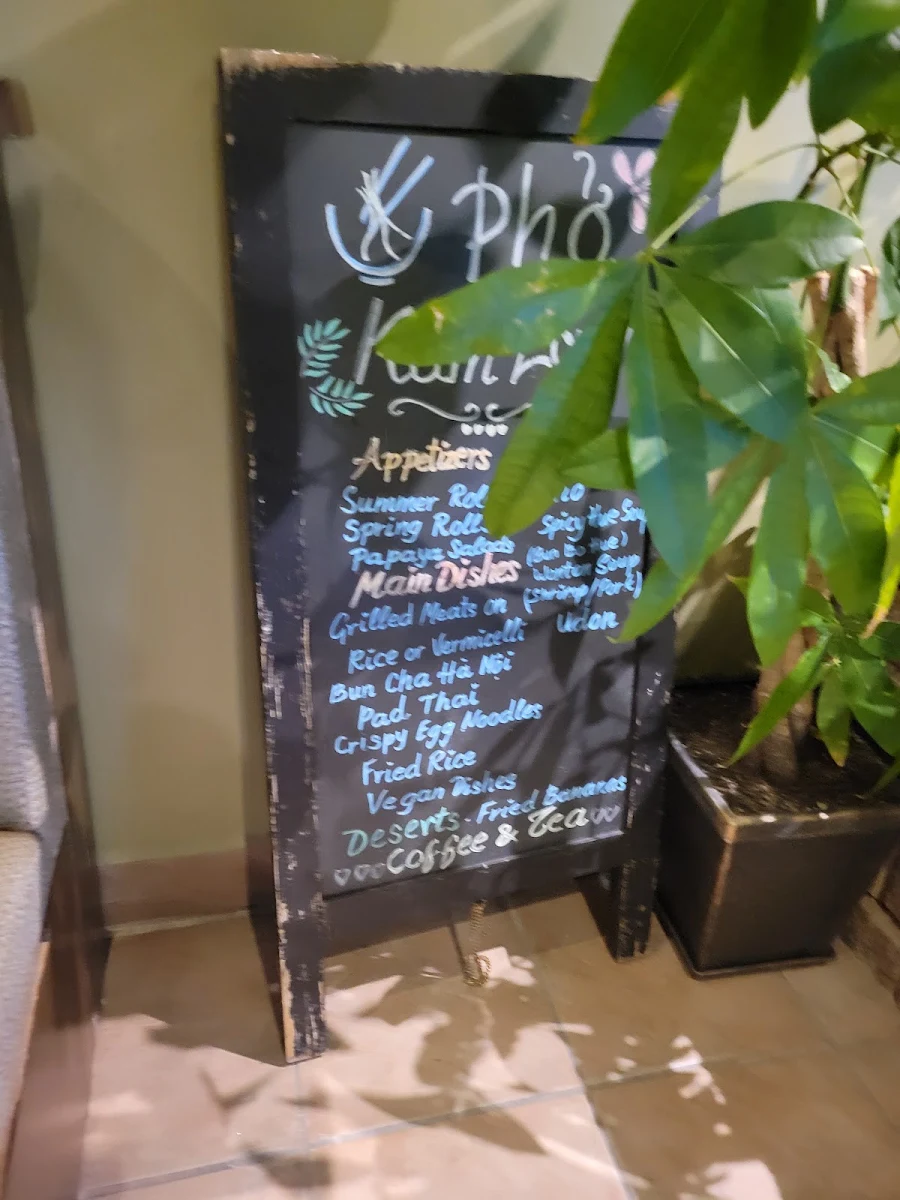 Phở
Appetizers
Summer
Spring Rolls
Papaya Salads
Main Dishes
Grilled Meats on
Rice or Vermicelli
Bun Cha Hà Nội
Pad Thai
Crispy Egg Noodles
Fried Rice
Vegan Dishes
Spicy Hue Soup
(Bun bo Hue)
Wonton Soup
(Shrimp/Pork)
Udon
Deserts - Fried Bananas
Coffee & Tea